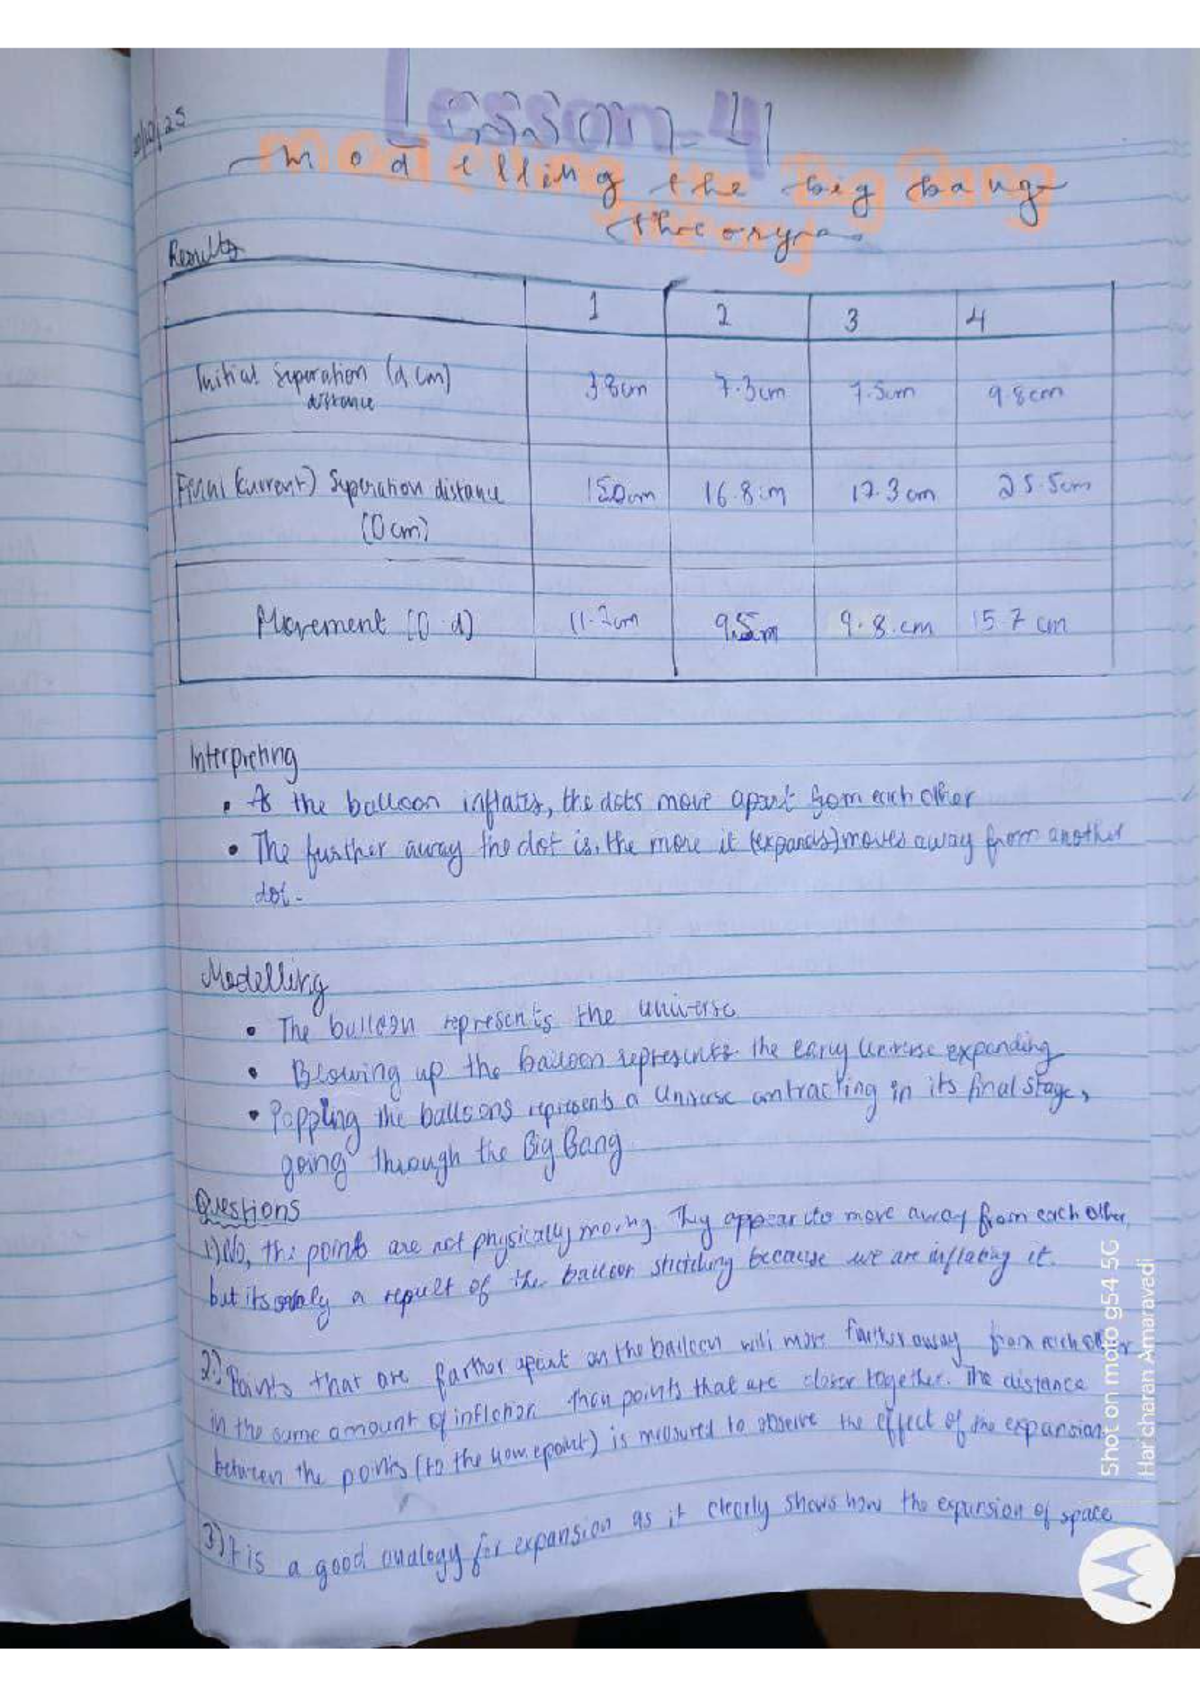 Lesson-4
modelling the big bang
theory
Results
1 2 3 4
Initial Seperation (d cm)
distance
3.8cm 7.3cm 7.5cm 9.8cm
Final (current) Seperation distance
(D cm)
15.0cm 16.8cm 17.3cm 25.5cm
Movement (D-d) 11.2cm 9.5cm 9.8.cm 15.7 cm
Interpreting
• As the balloon inflates, the dots move apart from each other
• The further away the dot is, the more it (expands) moves away from another
dot.
Modelling
• The balloon represents the universe
• Blowing up the balloon represents the early Universe expanding
• Poppling the balloons represents a Universe contracting in its final stage,
going through the Big Bang
Questions
1) No, the points are not physically moving. They appear to move away from each other,
but its only a result of the balloon stretching because we are inflating it.
2.) Points that are farther apart on the balloon will move further away from each other
in the same amount of inflation than points that are closer together. The distance
between the points (to the home point) is measured to observe the effect of the expansion.
3) It is a good analogy for expansion as it clearly shows how the expansion of space
Shot on moto g54 5G
Haricharan Amaravadi